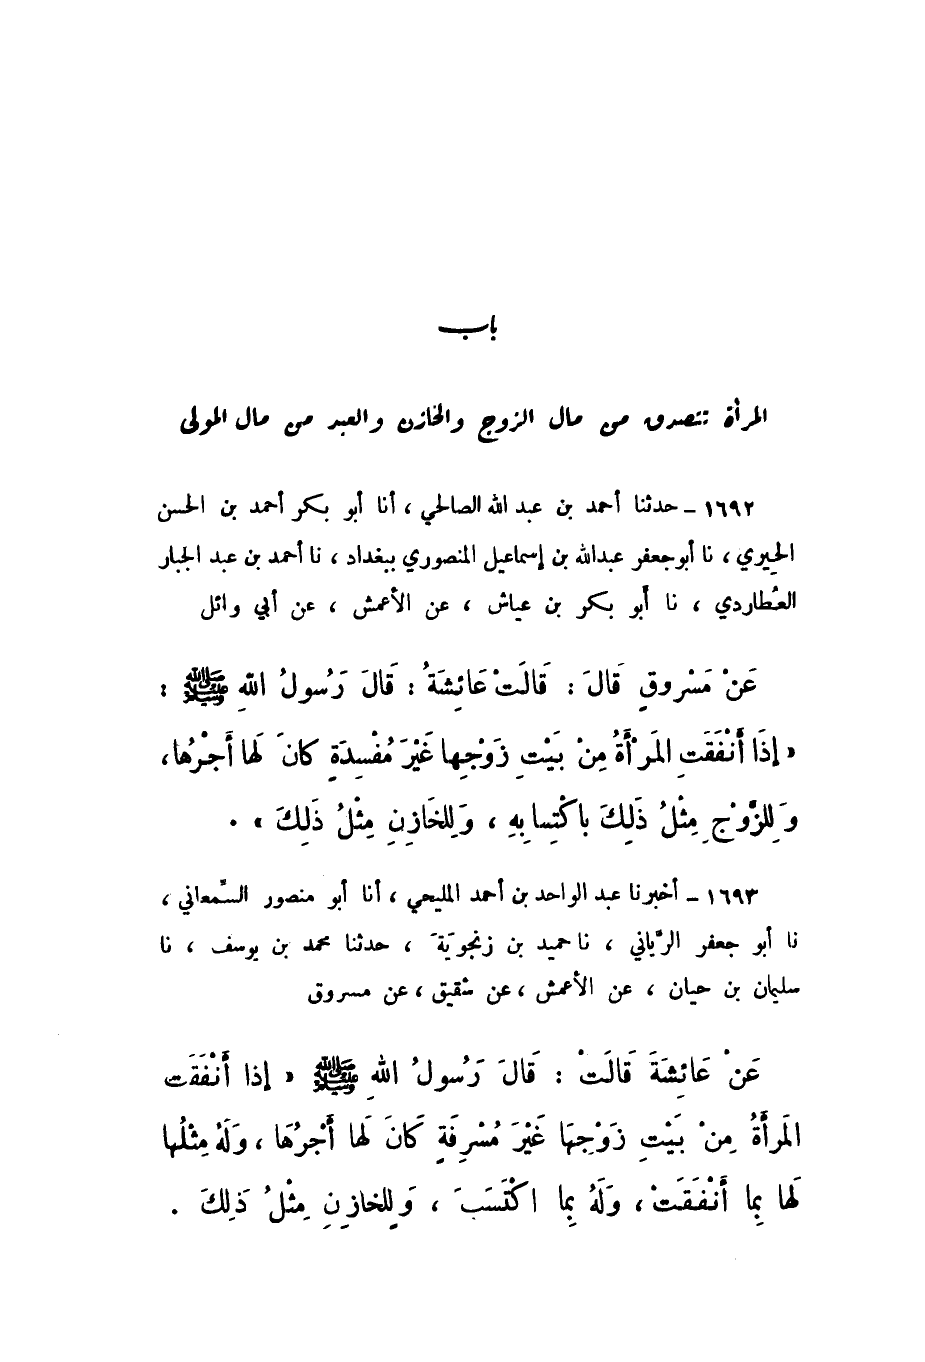 باب
المرأة تتصدق من مال الزوج والخازن والعبد من مال المولى
١٦٩٢ - حدثنا أحمد بن عبد الله الصالحي ، أنا أبو بكر أحمد بن الحسن
الحِيري ، نا أبو جعفر عبدالله بن إسماعيل المنصوري ببغداد ، نا أحمد بن عبد الجبار
العُطاردي ، نا أبو بكر بن عياش ، عن الأعمش ، عن أبي وائل
عَنْ مَسْروقٍ قَالَ : قَالَتْ عَائِشَةُ : قَالَ رَسُولُ اللهِ ﷺ :
« إذَا أَنْفَقَتِ المَرْأَةُ مِنْ بَيْتِ زَوْجِها غَيْرَ مُفْسِدَةٍ كانَ لَها أَجْرُها ،
وَلِلزَّوْجِ مِثْلُ ذَلِكَ باكْتِسابِهِ ، وَلِلخَازِنِ مِثْلُ ذَلِكَ » .
١٦٩٣ - أخبرنا عبد الواحد بن أحمد المليحي ، أنا أبو منصور السَّمعاني ،
نا أبو جعفر الرَّياني ، نا حميد بن زنجويَةَ ، حدثنا محمد بن يوسف ، نا
سليمان بن حيان ، عن الأعمش ، عن شقيق ، عن مسروق
عَنْ عَائِشَةَ قَالَتْ : قَالَ رَسُولُ اللهِ ﷺ « إذا أَنْفَقَت
المَرأَةُ مِنْ بَيْتِ زَوْجِهَا غَيْرَ مُسْرِفَةٍ كَانَ لَها أَجْرُهَا ، وَلَهُ مِثْلُها
لَها بِما أَنْفَقَتْ ، وَلَهُ بِما اكْتَسَبَ ، وَلِلخازِنِ مِثْلُ ذَلِكَ .